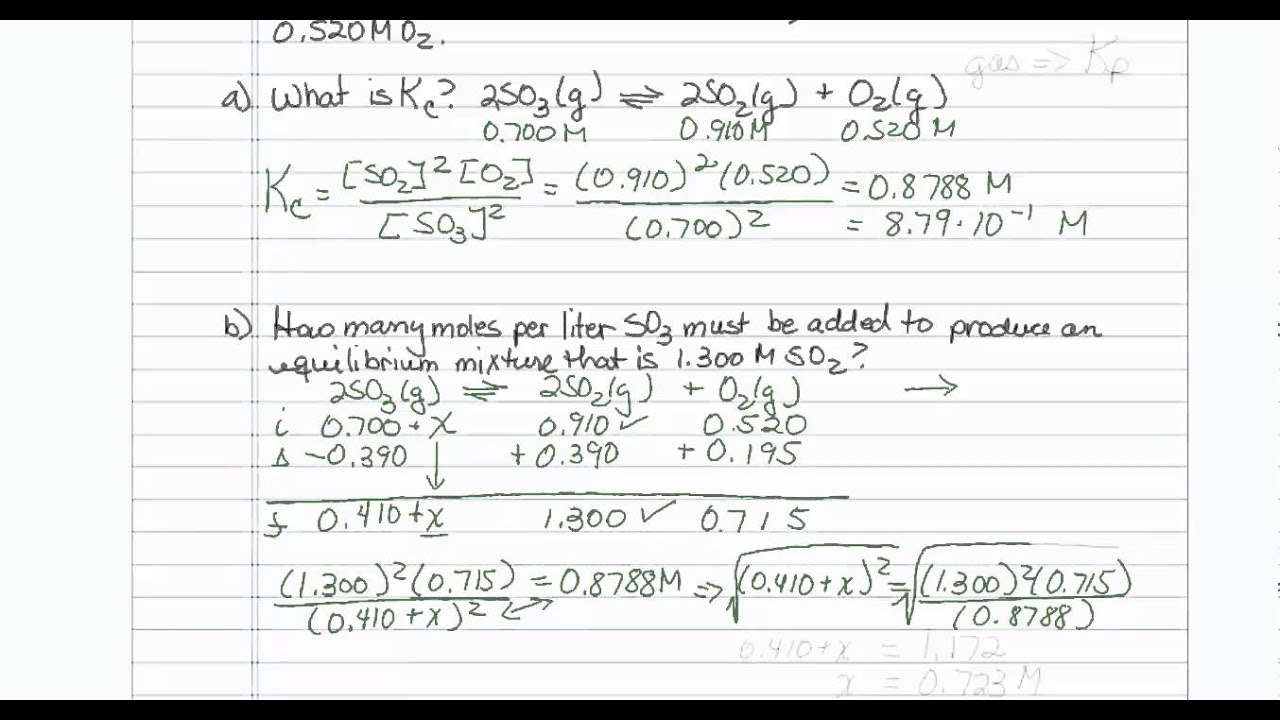 0.520M O₂.
gas => Kp
a) What is Kc? 2SO₃(g) ⇌ 2SO₂(g) + O₂(g)
0.700M 0.910M 0.520 M
Kc = [SO₂]² [O₂] / [SO₃]² = (0.910)² (0.520) / (0.700)² = 0.8788 M
= 8.79·10⁻¹ M
b) How many moles per liter SO₃ must be added to produce an
equilibrium mixture that is 1.300 M SO₂?
2SO₃(g) ⇌ 2SO₂(g) + O₂(g) →
i 0.700 + x 0.910 ✓ 0.520
Δ -0.390 ↓ +0.390 +0.195
f 0.410+x 1.300 ✓ 0.715
(1.300)²(0.715) / (0.410 + x)² = 0.8788M => √(0.410+x)² = √(1.300)²(0.715) / (0.8788)
0.410+x = 1.172
x = 0.723 M